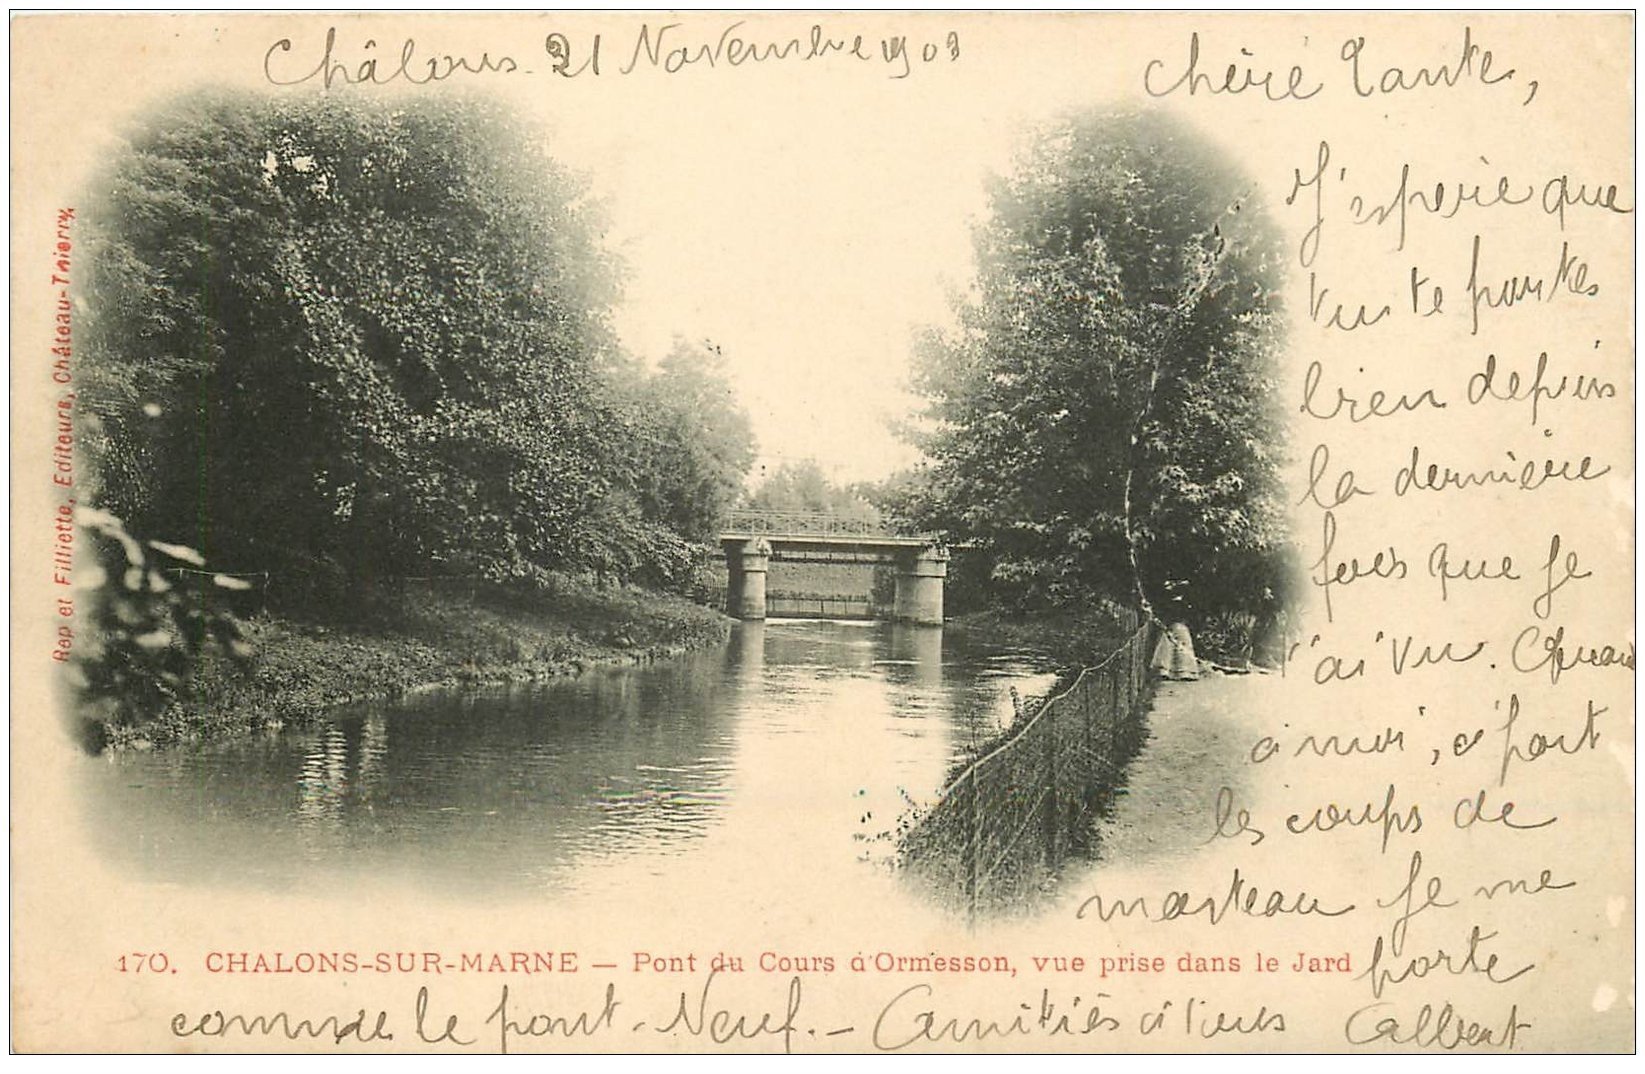 Châlons 21 Novembre 1903
Chère Tante,
J'espère que
tu te portes
bien depuis
la dernière
fois que je
t'ai vu. Quand
à moi, à part
les coups de
marteau je me
porte
comme le pont-Neuf. - Amitiés à tous Albert
170. CHALONS-SUR-MARNE — Pont du Cours d'Ormesson, vue prise dans le Jard
Rep et Filliette, Editeurs, Château-Thierry